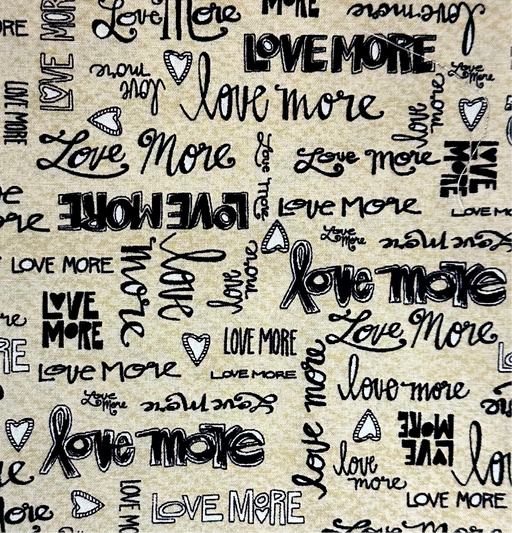 Love More
MORE
love more
ORE
LOVE MORE
LOVE MORE
Love
More
love
more
love more
LOVE MORE
love
more
Love More
Love more
Love More
LOVE
MORE
LOVE MORE
Love More
LOVE MO
ore
Love
More
Love More
LOVE MORE
love
more
love
more
love more
LOVE
MORE
Love More
LOVE MORE
RE
Love More
LOVE MORE
love more
love more
Love
More
Love More
LOVE
MORE
love more
love
more
LOVE MORE
LOVE MORE
More